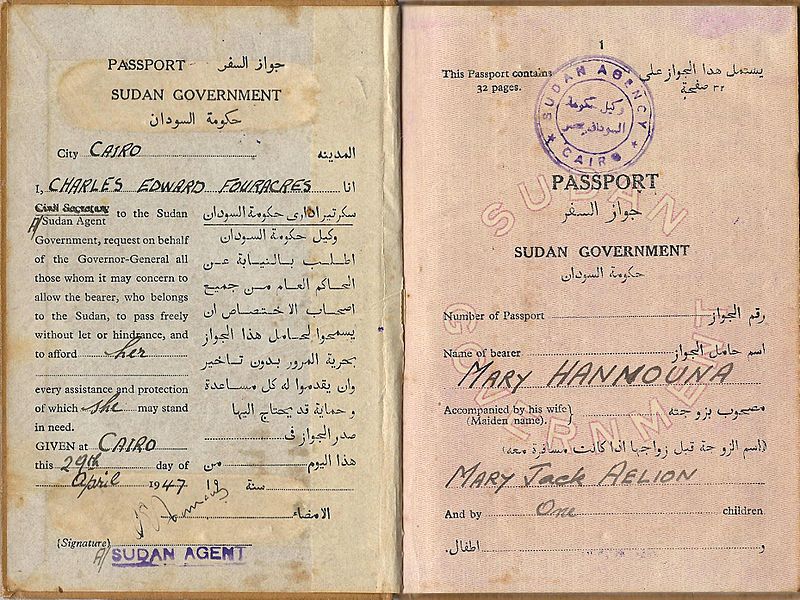 PASSPORT جواز السفر
SUDAN GOVERNMENT
حكومة السودان
City CAIRO المدينه
I, CHARLES EDWARD FOURACRES انا
Civil Secretary to the Sudan سكرتير اداري حكومة السودان
A/ Sudan Agent
وكيل حكومة السودان
Government, request on behalf اطلب بالنيابة عن
of the Governor-General all الحاكم العام من جميع
those whom it may concern to اصحاب الاختصاص ان
allow the bearer, who belongs يسمحوا لحامل هذا الجواز
to the Sudan, to pass freely بحرية المرور بدون تاخير
without let or hindrance, and وان يقدموا له كل مساعدة
to afford her وحماية قد يحتاج اليها
every assistance and protection
of which she may stand
in need. صدر الجواز فى
GIVEN at CAIRO
this 29th day of هذا اليوم من
April 1947 سنة ١٩
الامضاء
(Signature)
A/ SUDAN AGENT
1
This Passport contains يشتمل هذا الجواز على
32 pages. ٣٢ صفحة
SUDAN AGENCY
وكيل حكومة
السودان بمصر
CAIRO
PASSPORT
جواز السفر
SUDAN
SUDAN GOVERNMENT
حكومة السودان
GOVERNMENT
Number of Passport رقم الجواز
Name of bearer اسم حامل الجواز
MARY HANMOUNA
Accompanied by his wife مصحوب بزوجته
(Maiden name).
(اسم الزوجة قبل زواجها اذا كانت مسافرة معه)
MARY Jack AELION
And by One children
و اطفال.